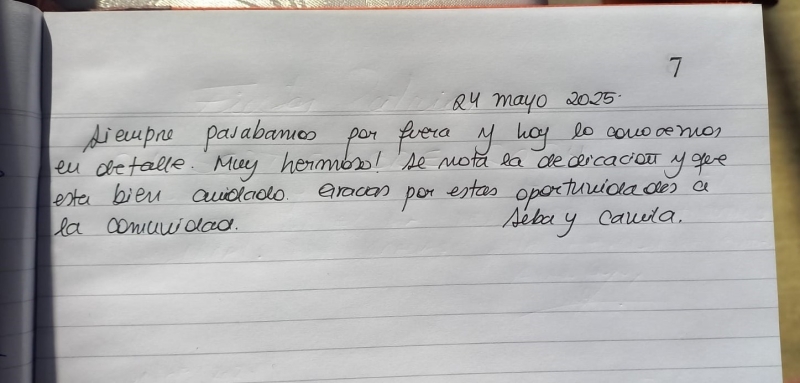 7
24 mayo 2025.
Siempre pasabamos por fuera y hoy lo conocemos
en detalle. Muy hermoso! Se nota la dedicación y que
esta bien cuidado. Gracias por estas oportunidades a
la comunidad.
Seba y Camila.